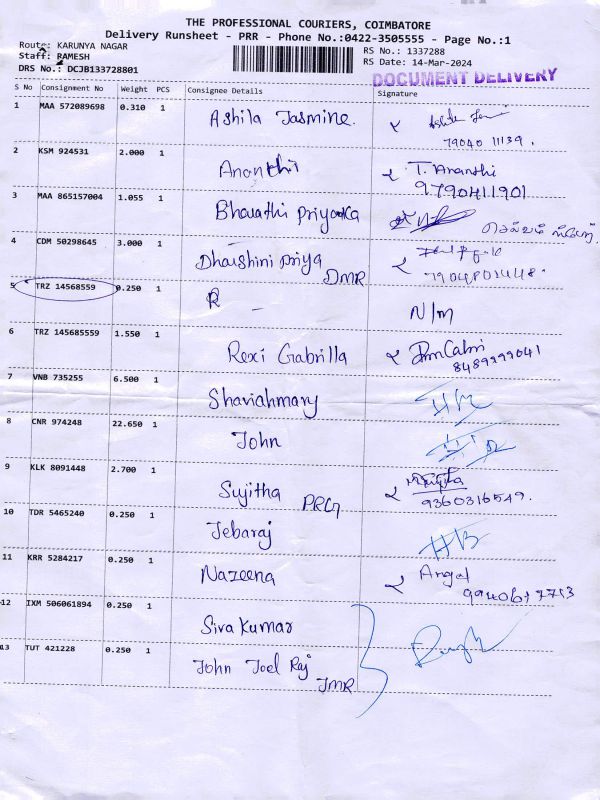 THE PROFESSIONAL COURIERS, COIMBATORE
Delivery Runsheet - PRR - Phone No.:0422-3505555 - Page No.:1
Route: KARUNYA NAGAR
RS No.: 1337288
Staff: RAMESH
RS Date: 14-Mar-2024
DRS No.: DCJB133728801
DOCUMENT DELIVERY
S No Consignment No Weight PCS Consignee Details Signature
1 MAA 572089698 0.310 1 Ashila Jasmine.
79040 11139.
2 KSM 924531 2.000 1 Ananthi T. Ananthi
9790411901
3 MAA 865157004 1.055 1 Bharathi Priyanka
4 CDM 50298645 3.000 1 Dharshini Priya
DMR
5 TRZ 14568559 0.250 1 R N/m
6 TRZ 145685559 1.550 1 Rexi Gabrilla
8489299041
7 VNB 735255 6.500 1 Shaviahmary
8 CNR 974248 22.650 1 John
9 KLK 8091448 2.700 1 Sujitha
PRG 9360316549.
10 TDR 5465240 0.250 1 Jebaraj
11 KRR 5284217 0.250 1 Nazeena Angel
12 IXM 506061894 0.250 1 Siva Kumar
13 TUT 421228 0.250 1 John Joel Raj
JMR